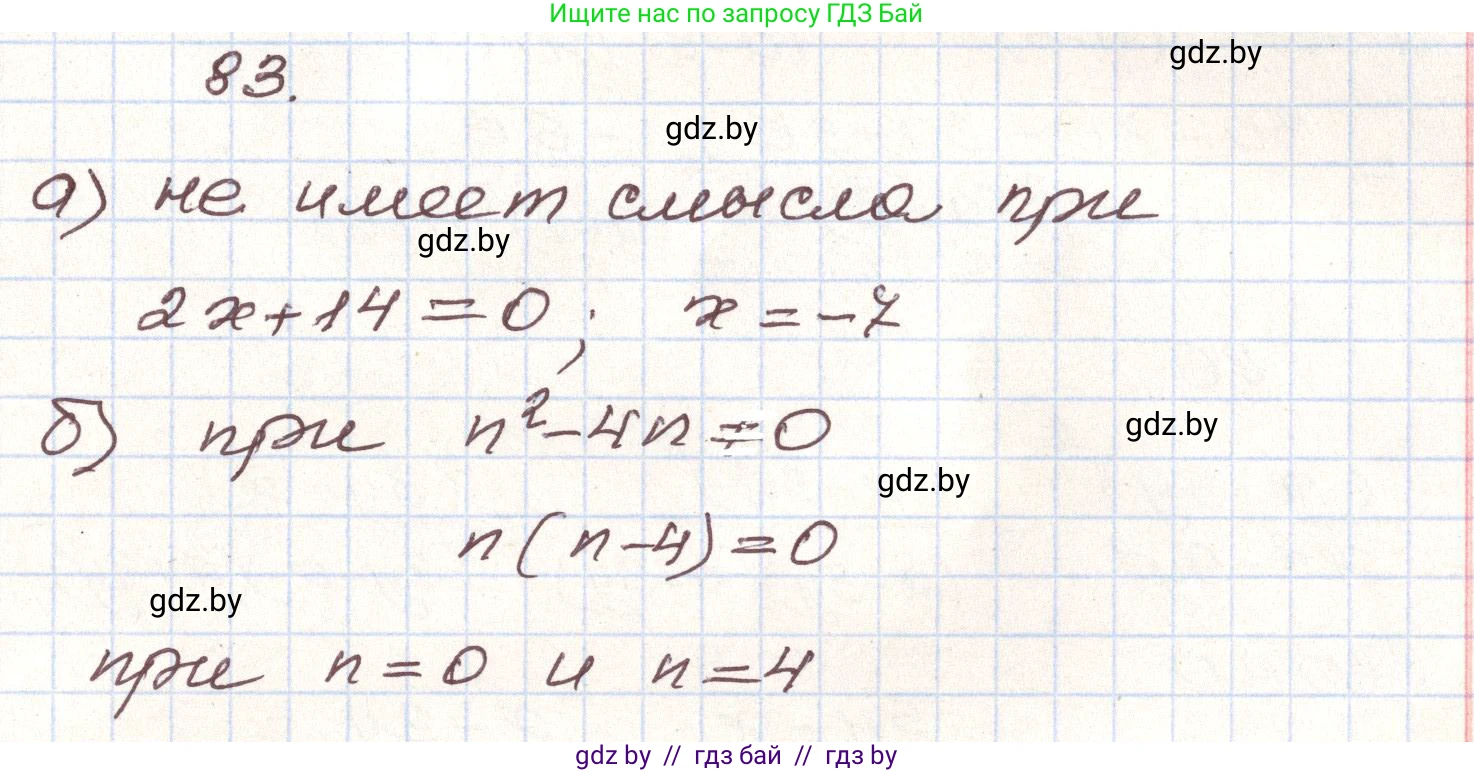 Ищите нас по запросу ГДЗ Бай
83.
gdz.by
gdz.by
а) не имеет смысла при
gdz.by
2x+14=0; x=-7
б) при n²-4n=0
gdz.by
gdz.by
n(n-4)=0
gdz.by
при n=0 и n=4
gdz.by // гдз бай // гдз by